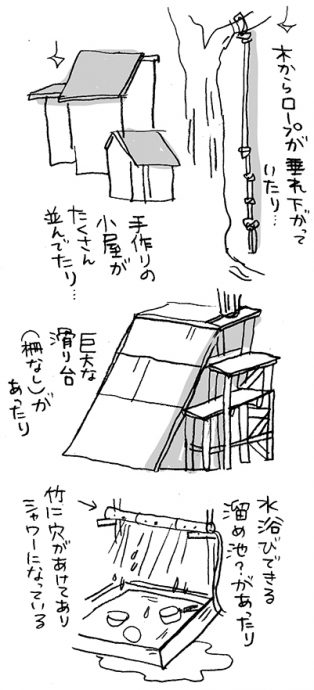 木からロープが垂れ下がって
いたり…
手作りの
小屋が
たくさん
並んでたり…
巨大な
滑り台
(柵なし)が
あったり
水浴びできる
溜め池?があったり
竹に穴があけてあり
シャワーになっている